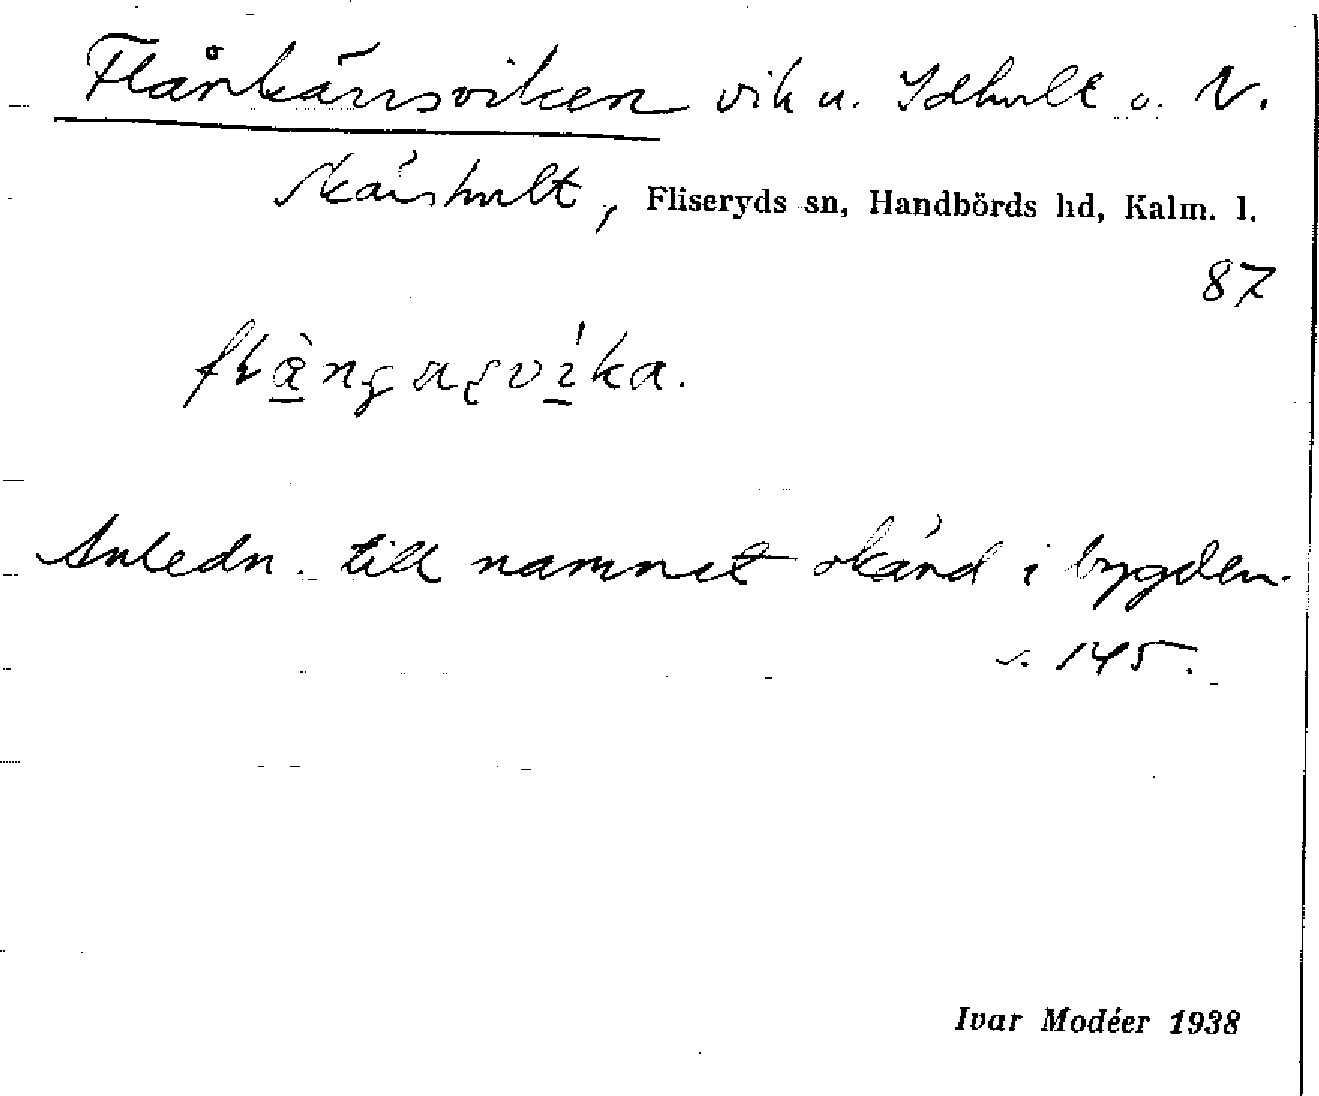 Flånkärrsviken vik u. Idhult o. V.
Skärshult, Fliseryds sn, Handbörds hd, Kalm. l.
87
Anledn. till namnet okänd i bygden.
s. 145.
Ivar Modéer 1938